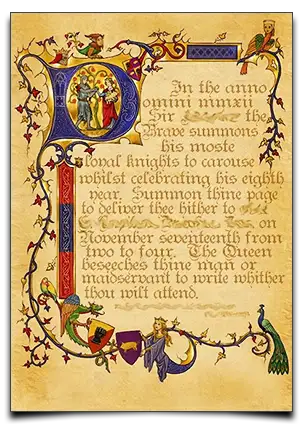 In the anno
Domini mmxii
Sir the
Brave summons
his moste
loyal knights to carouse
whilst celebrating his eighth
year. Summon thine page
to deliver thee hither to
on
November seventeenth from
two to four. The Queen
beseeches thine man or
maidservant to write whither
thou wilt attend.